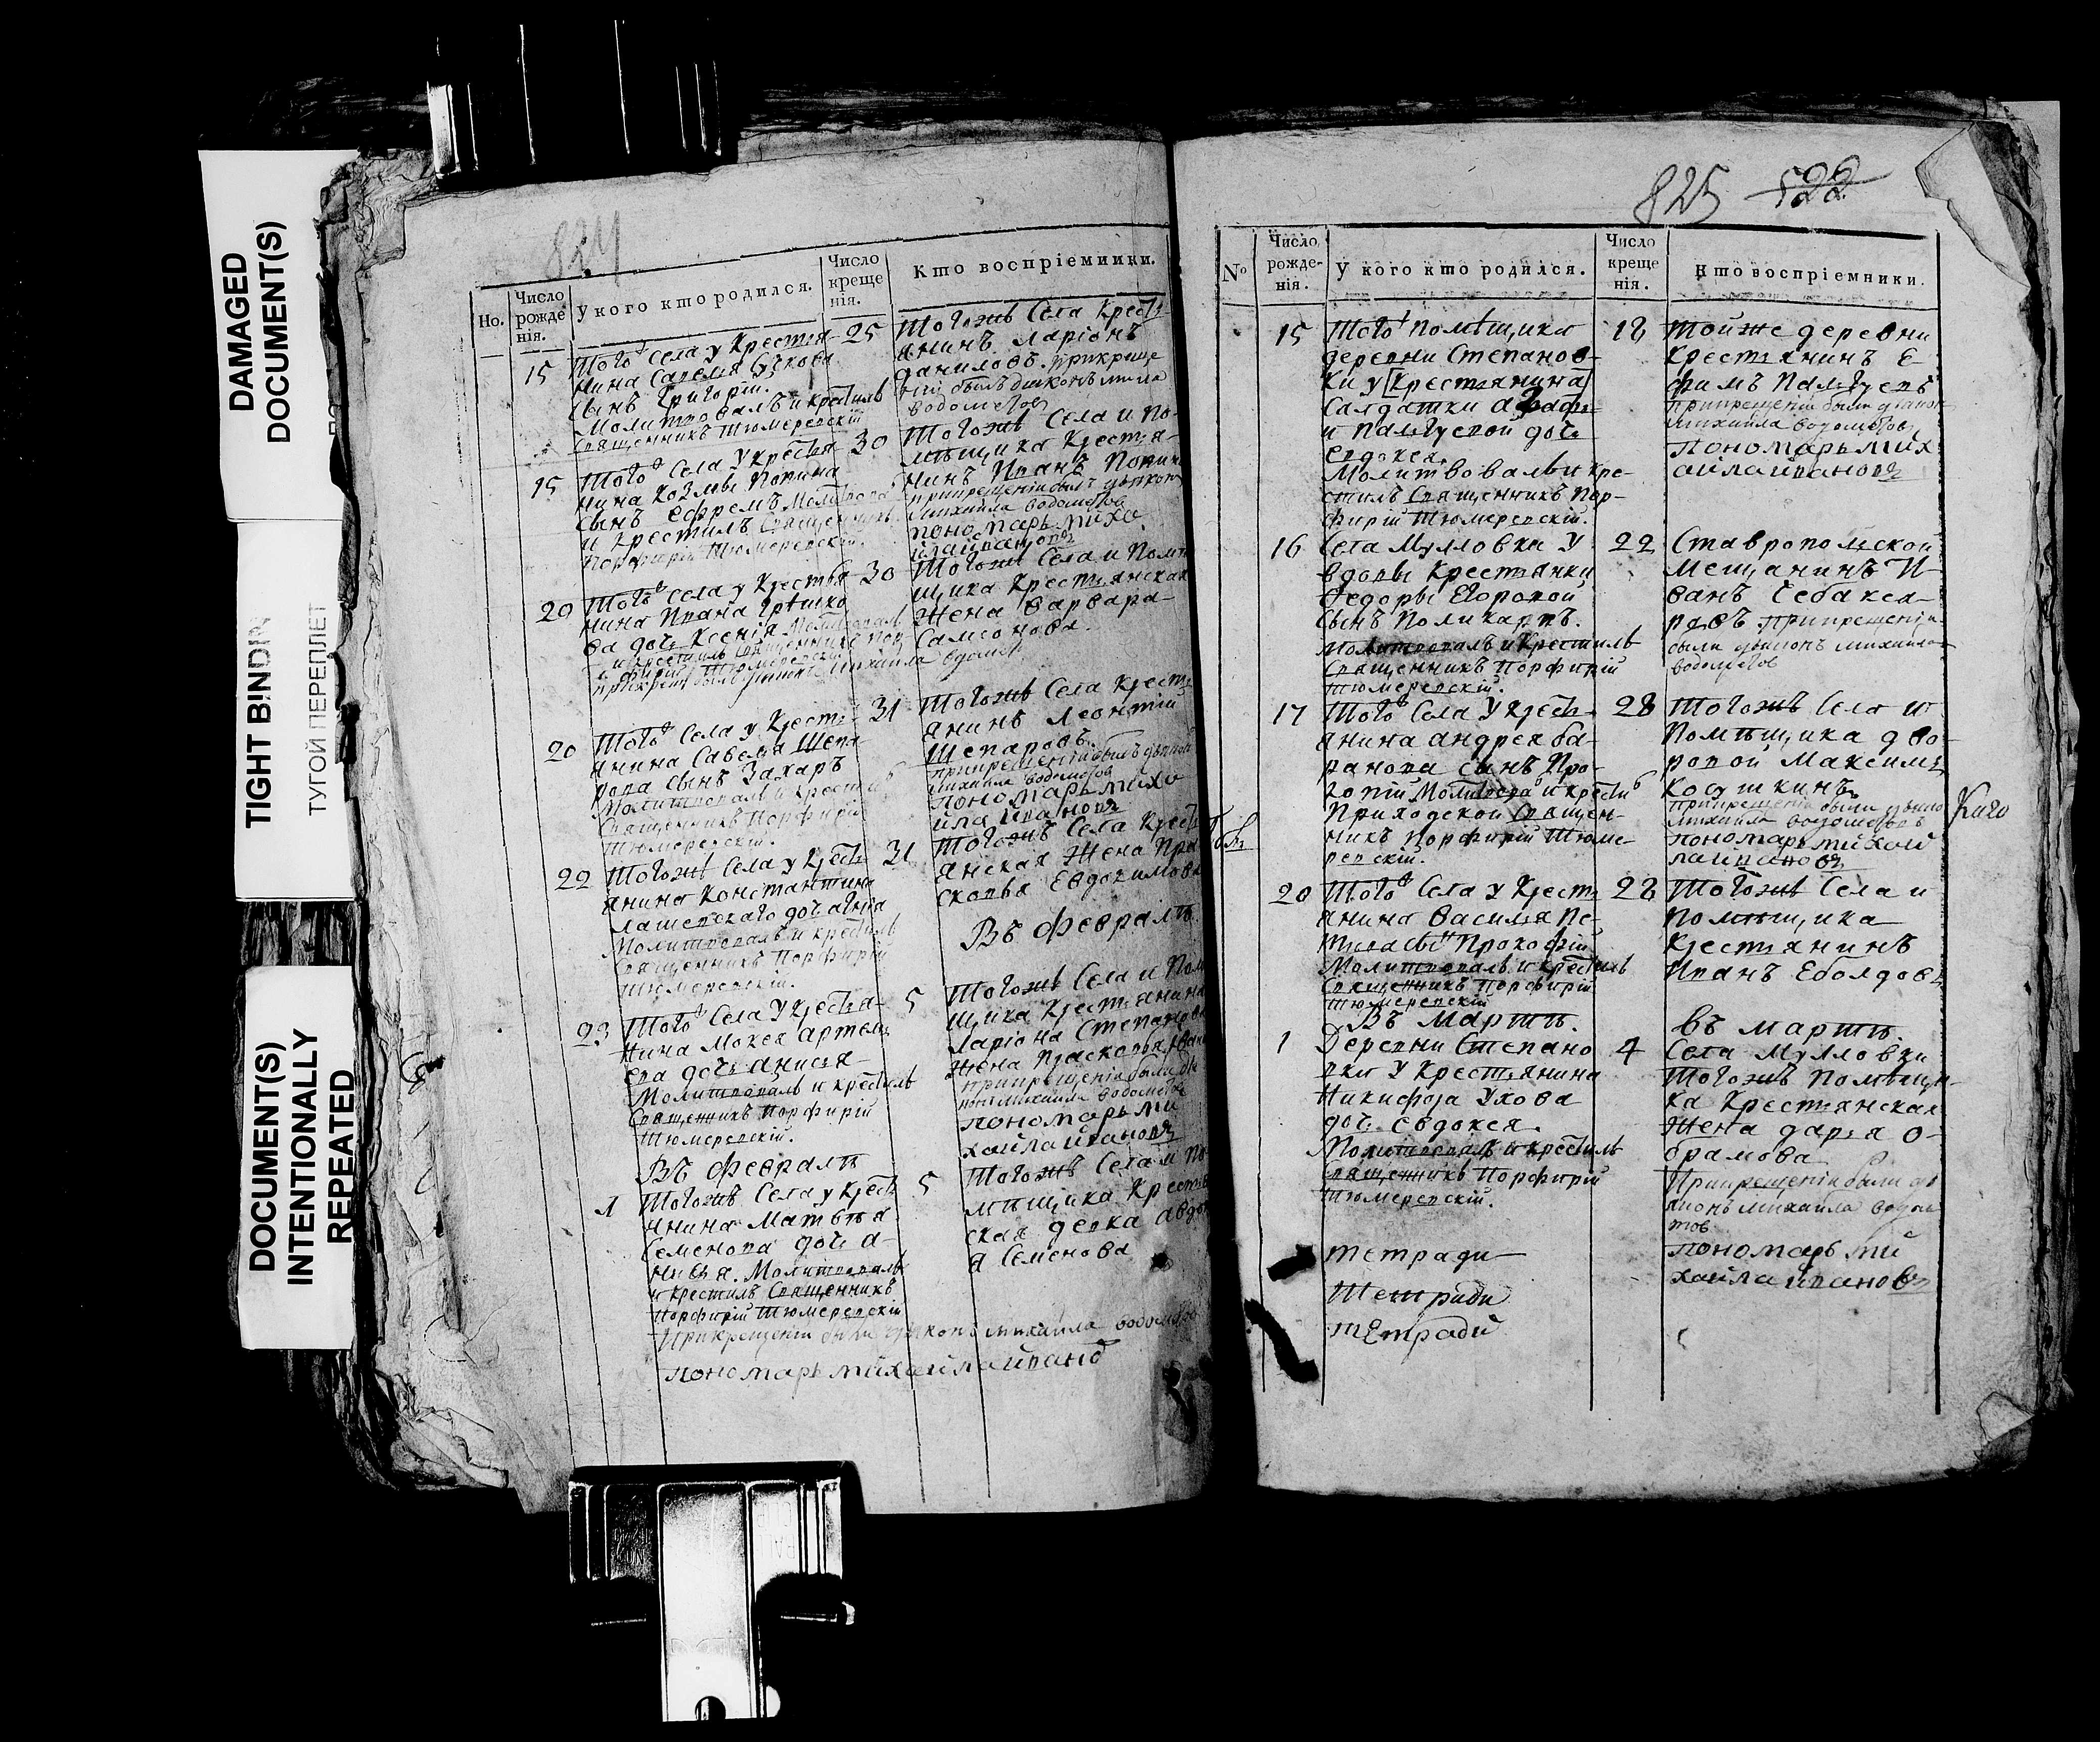 DAMAGED
DOCUMENT(S)
TIGHT BINDIN
ТУГОЙ ПЕРЕПЛЕТ
DOCUMENT(S)
INTENTIONALLY
REPEATED
824
Но.
Число рожденія.
У кого кто родился.
Число крещенія.
Кто воспріемники.
15
Того Села у Крестья-
нина Савелья
сынъ Григорій.
Молитвовалъ и крестилъ
Священникъ Тюмеревскій
25
Тогожъ Села Кресть
янинъ Ларіонъ
Даниловъ. Прикреще
ніи былъ дьяконъ миха
водометов
15
Того Села у крестья
нина Козмы Попина
сынъ Ефремъ Молитвова
и крестилъ Священникъ
Порфирій Тюмеревскій.
30
Тогожъ Села и По-
мѣщика Крестья-
нинъ Иванъ Попин
прикрещеніи былъ дьякон
михайла водометов
пономарь миха
йлаивановъ
20
Того Села у Крестья
нина Ивана
ва дочь Ксенія Молитвовал
и крестилъ Священникъ Пор
фирій Тюмеревскій
30
Тогожъ Села и Помѣ
щика Крестьянская
жена Варвара
Самсонова.
20
Того Села у Кресть
янина Савелья Шепа
рова сынъ Захаръ
Молитвовалъ и крести
Священникъ Порфирій
Тюмеревскій.
31
Тогожъ Села Кресть
янинъ Леонтій
Шепаровъ.
прикрещеніи былъ дьякон
михайла водометов
пономарь миха
йла ивановъ
22
Тогожъ Села у Кресть
янина Константина
дочь агнія
Молитвовалъ и крестилъ
Священникъ Порфирій
Тюмеревскій.
31
Тогожъ Села Кресть
янская Жена Пра
сковья Евдокимова
Въ Февралѣ
23
Того Села у Крестья-
нина Мокея Артемь
ева дочь анисья
Молитвовалъ и крестилъ
Священникъ Порфирій
Тюмеревскій.
5
Тогожъ Села и Пом
щика Крестьянина
Ларіона Степанова
жена Прасковья Иван
прикрещеніи были дья
конъ михайла водометов
пономарь ми
хайлаивановъ
Въ Февралѣ
1
Тогожъ Села у Кресть
янина Матвѣя
Семенова дочь а-
нисья. Молитвовалъ
и крестилъ Священникъ
Порфирій Тюмеревскій
5
Тогожъ Села и По
мѣщика Крестьян
ская девка авдоть
я Семенова
Прикрещеніи были дьяконъ михайла водометов
пономарь михайлаивано
825 522
No
Число рожде-нія.
У кого кто родился.
Число крещенія.
Кто воспріемники.
15
Того помѣщика
деревни Степанов-
ки у Крестьянина
Салдатки
и Пальгуевой дочь
евдокея.
Молитвовалъ и кре-
стилъ Священникъ Пор-
фирій Тюмеревскій.
18
Тойже деревни
Крестьянинъ Е
фимъ Пальгуевъ
прикрещеніи были дьякон
михайла водометов
Пономарь мих
айлаивановъ
16
Села Мулловки У
вдовы Крестьянки
Федоры
сынъ Поликарпъ.
Молитвовалъ и Крестилъ
Священникъ Порфирій
Тюмеревскій.
22
Ставропольской
мещанинъ И-
ванъ Чебакса-
ровъ прикрещеніи
были дьяконъ михайла
водометов
17
Того Села У Кресть-
янина андрея ба-
ранова сынъ Про-
копій Молитвова и крести
Приходской Священ-
никъ Порфирій Тюме-
ревскій.
28
Тогожъ Села и
Помѣщика дво-
ровой Максимъ
Косушкинъ
прикрещеніи были дьяко
михайла водометовъ
пономарь михай
лаивановъ
20
Того Села у Кресть
янина Василья Пе-
сынъ Прокофій
Молитвовалъ и крестилъ
Священникъ Порфирій
Тюмеревскій
28
Тогожъ Села и
помѣщика
Крестьянинъ
Иванъ Еболдовъ
Въ Мартѣ.
въ мартѣ.
1
Деревни Степано
вки у Крестьянина
Никифора Ухова
дочь евдокея.
Молитвовалъ и крестилъ
Священникъ Порфирій
Тюмеревскій.
4
Села Мулловки
тогожъ Помѣщи-
ка Крестьянская
жена дарья о-
брамова
Прикрещеніи были дь
яконъ михайла водоме
тов
пономарь ми
хайлаивановъ
тетради
тетради
тетради